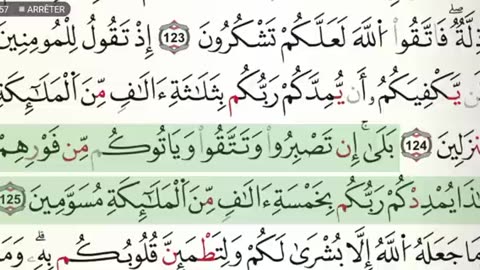 57 ■ ARRÊTER
ذِلَّةٌ فَاتَّقُوا۟ اُ۬للَّهَ لَعَلَّكُمْ تَشْكُرُونَ 123 إِذْ تَقُولُ لِلْمُومِنِينَ
ن يَّكْفِيَكُمُۥٓ أَن يُّمِدَّكُمْ رَبُّكُم بِثَلَٰثَةِ ءَالَٰفٖ مِّنَ اَ۬لْمَلَٰٓئِكَةِ
نزَلِينَ 124 بَلَىٰٓ إِن تَصْبِرُوا۟ وَتَتَّقُوا۟ وَيَاتُوكُم مِّن فَوْرِهِمْ
ذَا يُمْدِدْكُمْ رَبُّكُم بِخَمْسَةِ ءَالَٰفٖ مِّنَ اَ۬لْمَلَٰٓئِكَةِ مُسَوَّمِينَ 125
مَا جَعَلَهُ اُ۬للَّهُ إِلَّا بُشْرَىٰ لَكُمْ وَلِتَطْمَئِنَّ قُلُوبُكُم بِهِۦ وَمَا